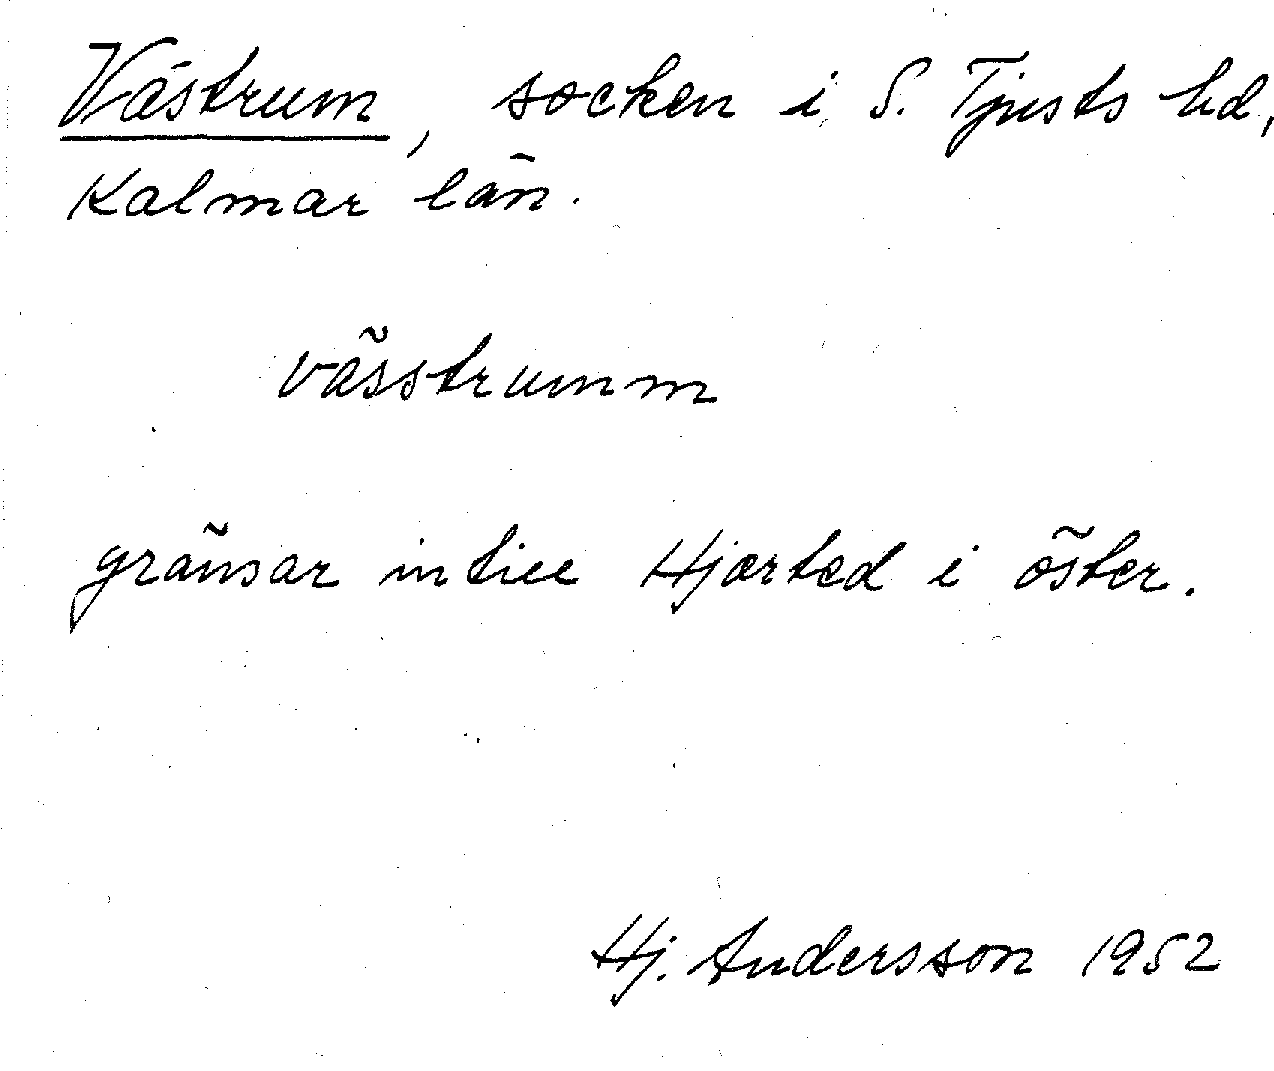 Västrum, socken i S. Tjusts hd,
Kalmar län.
vässtrumm
gränsar intill Hjorted i öster.
Hj. Andersson 1952